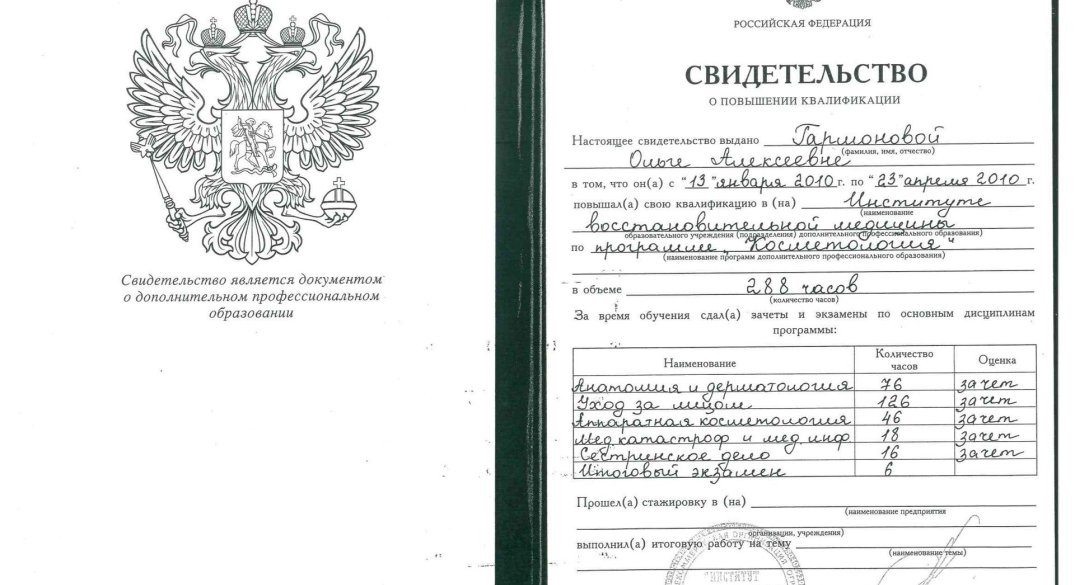 Свидетельство является документом
о дополнительном профессиональном
образовании
РОССИЙСКАЯ ФЕДЕРАЦИЯ
СВИДЕТЕЛЬСТВО
О ПОВЫШЕНИИ КВАЛИФИКАЦИИ
Настоящее свидетельство выдано Гармоновой
(фамилия, имя, отчество)
Ольге Алексеевне
в том, что он(а) с "13" января 2010 г. по "23" апреля 2010 г.
повышал(а) свою квалификацию в (на) Институте
(наименование)
восстановительной медицины
образовательного учреждения (подразделения) дополнительного профессионального образования)
по программе "Косметология"
(наименование программ дополнительного профессионального образования)
в объеме 288 часов
(количество часов)
За время обучения сдал(а) зачеты и экзамены по основным дисциплинам
программы:
Наименование Количество часов Оценка
Анатомия и дерматология 76 зачет
Уход за лицом 126 зачет
Аппаратная косметология 46 зачет
Мед.катастроф и мед.инф 18 зачет
Сестринское дело 16 зачет
Итоговый экзамен 6
Прошел(а) стажировку в (на)
(наименование предприятия
организации, учреждения)
выполнил(а) итоговую работу на тему
(наименование темы)
"ИНСТИТУТ